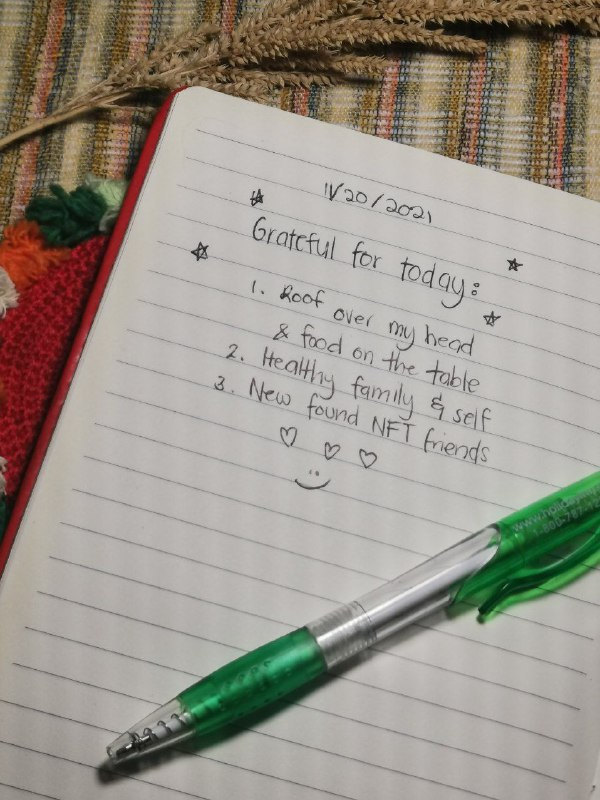 11/20/2021
Grateful for today:
1. Roof over my head
& food on the table
2. Healthy family & self
3. New found NFT friends